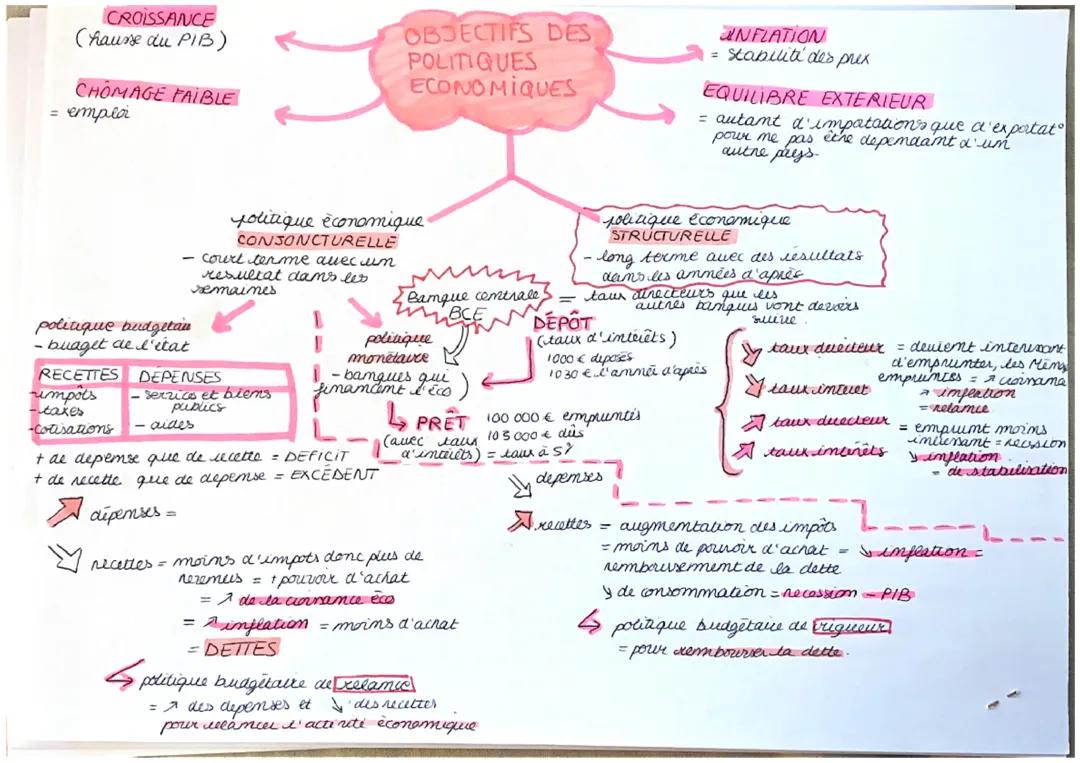 CROISSANCE
(hausse du PIB)
CHÔMAGE FAIBLE
= emploi
OBJECTIFS DES
POLITIQUES
ECONOMIQUES
INFLATION
= stabilité des prix
EQUILIBRE EXTERIEUR
= autant d'importations que d'exportat°
pour ne pas être dependant d'un
autre pays.
politique économique
CONJONCTURELLE
- court terme avec un
resultat dans les
semaines
politique économique
STRUCTURELLE
- long terme avec des résultats
dans les années d'après
Banque centrale
BCE
= taux directeurs que les
autres banques vont devoir
suivre.
politique budgétair
- budget de l'état
RECETTES
- impôts
- taxes
- cotisations
DÉPENSES
- services et biens
publics
- aides
+ de depense que de recette = DEFICIT
+ de recette que de depense = EXCÉDENT
politique
monétaire
- banques qui
financent l'éco)
DÉPÔT
(taux d'intérêts)
1000 € deposés
1030 € l'année d'après
↳ PRÊT
(avec taux
d'intérêts)
100 000 € empruntés
105 000 € dûs
= taux à 5%
↘ taux directeur
↘ taux interet
= devient interessant
d'emprunter, les mêm
empruntes = ↗ croissance
↗ inflation
= relance
↗ taux directeur
↗ taux intérêts
= emprunt moins
interessant = recession
↘ inflation
= de stabilisation
↗ dépenses =
↘ recettes = moins d'impots donc plus de
revenus = + pouvoir d'achat
= ↗ de la croissance éco
= ↗ inflation = moins d'achat
= DETTES
↳ politique budgétaire de relance
= ↗ des depenses et ↘ des recettes
pour relancer l'activité économique
↘ depenses
↗ recettes = augmentation des impôts
= moins de pouvoir d'achat = ↘ inflation =
remboursement de la dette
↘ de consommation = recession - PIB
↳ politique budgétaire de rigueur
= pour rembourser la dette.